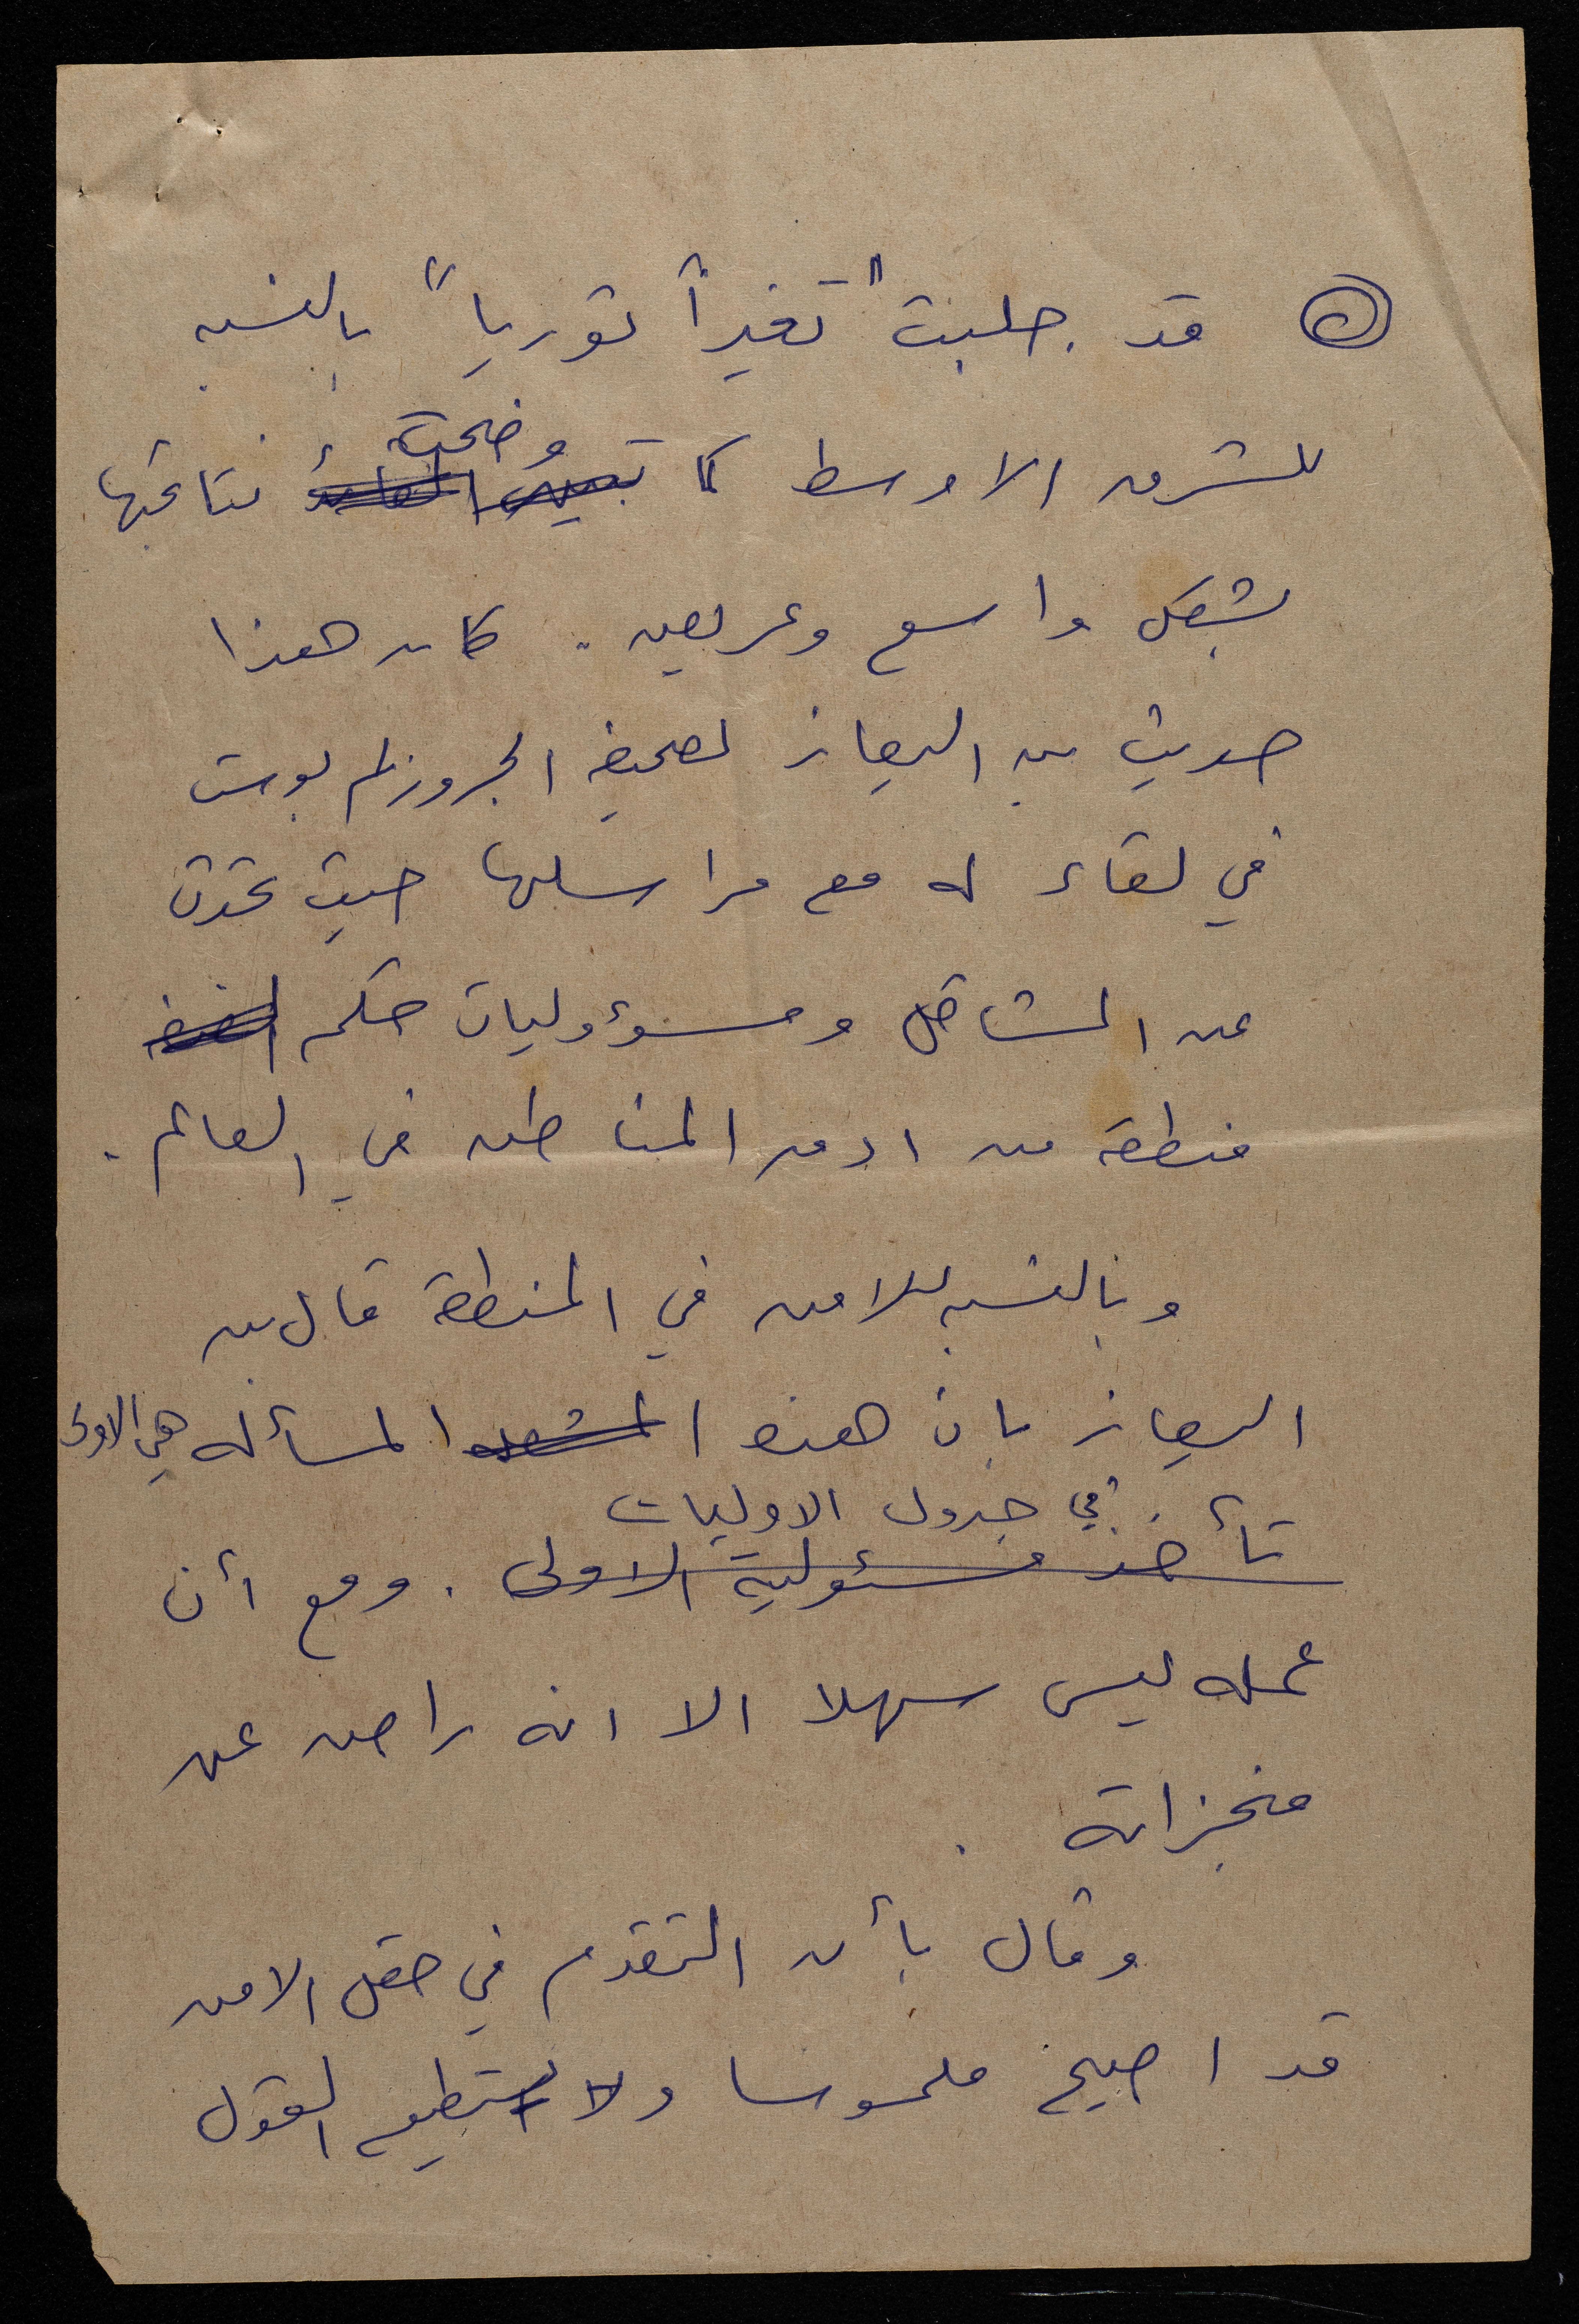 قد جلبت "تغيراً ثورياً" بالنسبه
للشرق الاوسط كما وضحت نتائجها
بشكل واسع وعريض. كان هذا
حديث بن اليعازر لصحيفه الجروزلم بوست
في لقاء له مع مراسلها حيث تحدث
عن المشاكل ومسؤوليات حكم
منطقة من ادق المناطق في العالم.
وبالنسبه للامن في المنطقة قال بن
اليعازر بان هذه المسأله هي الاولى
في جدول الاوليات
تأخذ مسئولية الاولى. ومع أن
عمله ليس سهلا الا انه راض عن
منجزاته.
وقال بأن التقدم في حقل الامن
قد اصبح ملموسا ولا استطيع القول